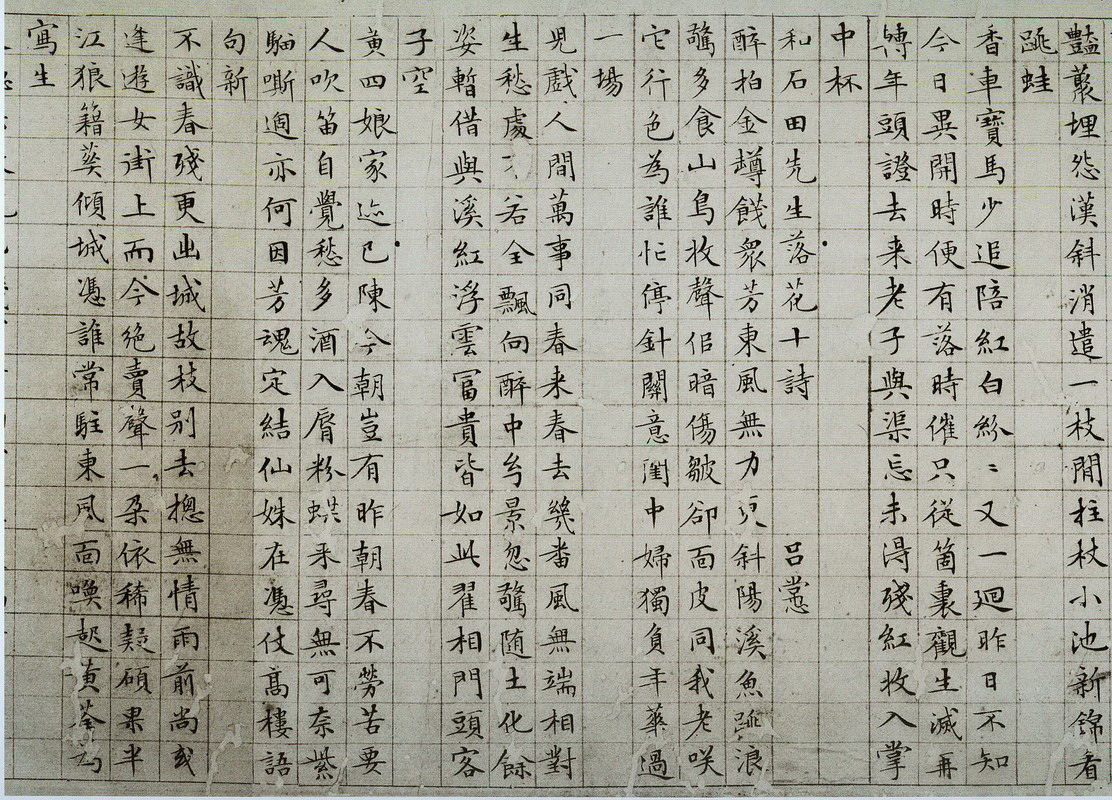 豔叢埋怨漢斜消遣一枝閒拄杖小池新錦看
跳蛙
香車寶馬少追陪紅白紛〻又一迴昨日不知
今日異開時便有落時催只從箇裏觀生滅再
轉年頭證去来老子與渠忘未得殘紅收入掌
中杯
和石田先生落花十詩 呂㦂
醉拍金罇餞衆芳東風無力更斜陽溪魚跳浪
驚多食山鳥收聲佀暗傷皺卻面皮同我老咲
它行色為誰忙停針關意閨中婦獨負年華過
一場
兒戲人間萬事同春来春去幾番風無端相對
生愁處不若全飄向醉中与景忽驚随土化餘
姿暫借與溪紅浮雲冨貴皆如此翟相門頭客
子空
黄四娘家迹已陳今朝豈有昨朝春不勞苦要
人吹笛自覺愁多酒入脣粉蜨来尋無可奈紫
騮嘶過亦何因芳魂定結仙姝在憑仗髙樓語
句新
不識春殘更出城故枝别去摠無情雨前尚或
逢遊女街上而今絶賣聲一朶依稀疑碩果半
江狼籍葬傾城憑誰常駐東風面喚起黄荃与
寫生